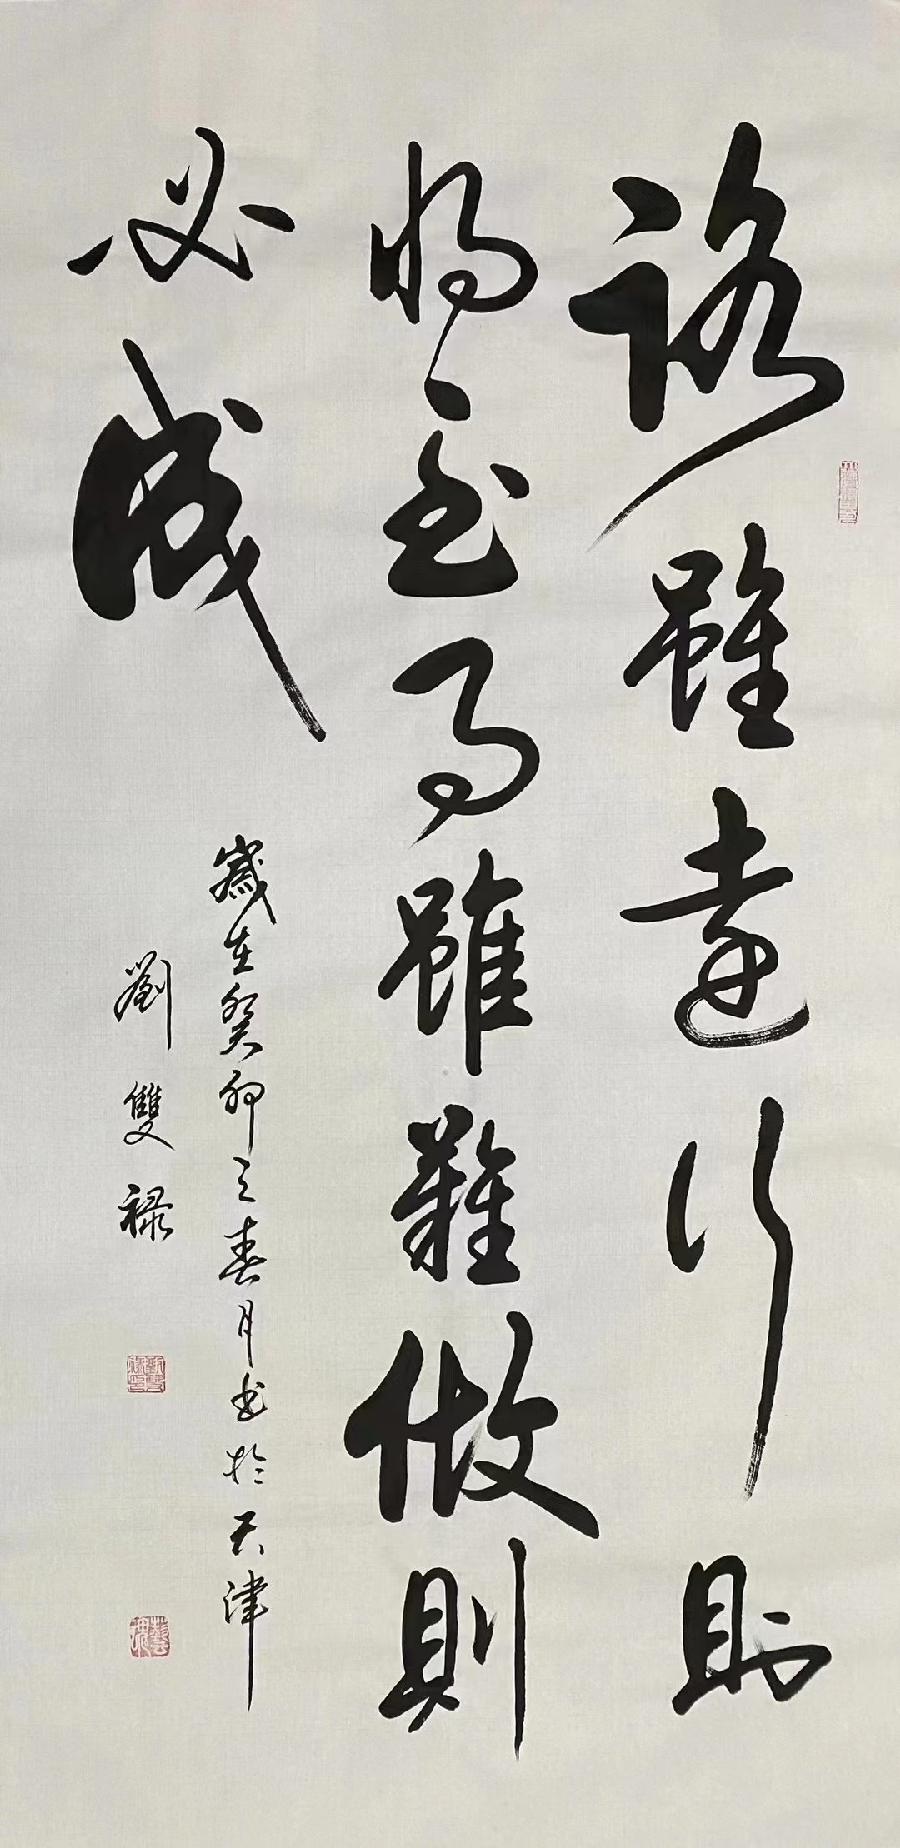 路雖遠行則
將至事雖難做則
必成
歲在癸卯之春月书於天津
劉雙禄